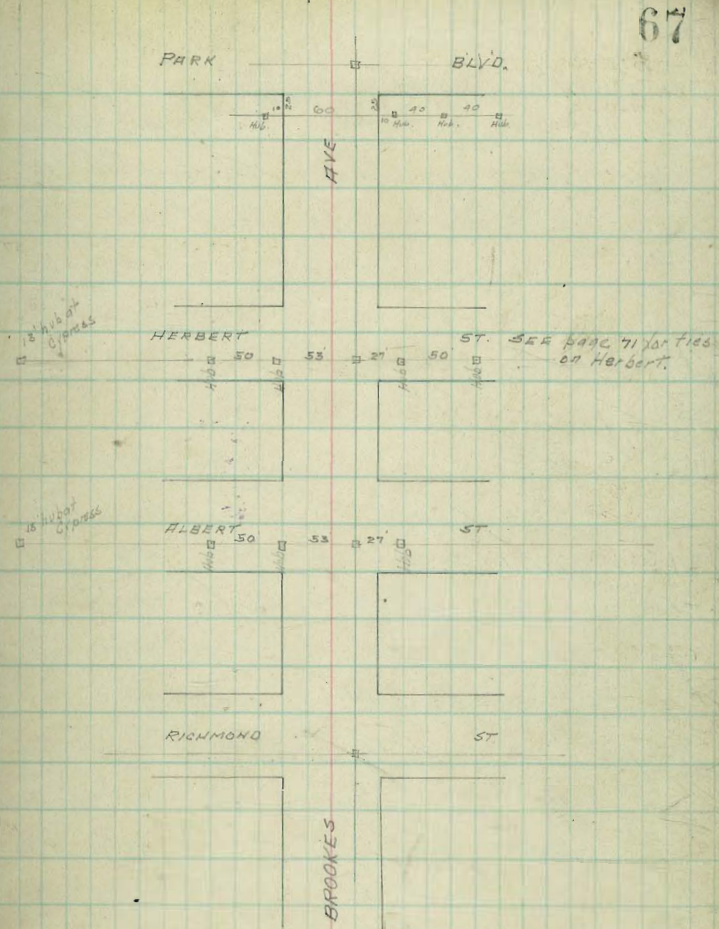 67
PARK BLVD.
18 25 60 25 40 40
Hub. 10 Hub. Hub. Hub.
AVE
13' hub at
Cypress
HERBERT ST. SEE page 71 for ties
50 53 27 50 on Herbert.
Hub Hub Hub Hub
13' hub at
Cypress
ALBERT ST
50 53 27
Hub Hub
RICHMOND ST
BROOKES